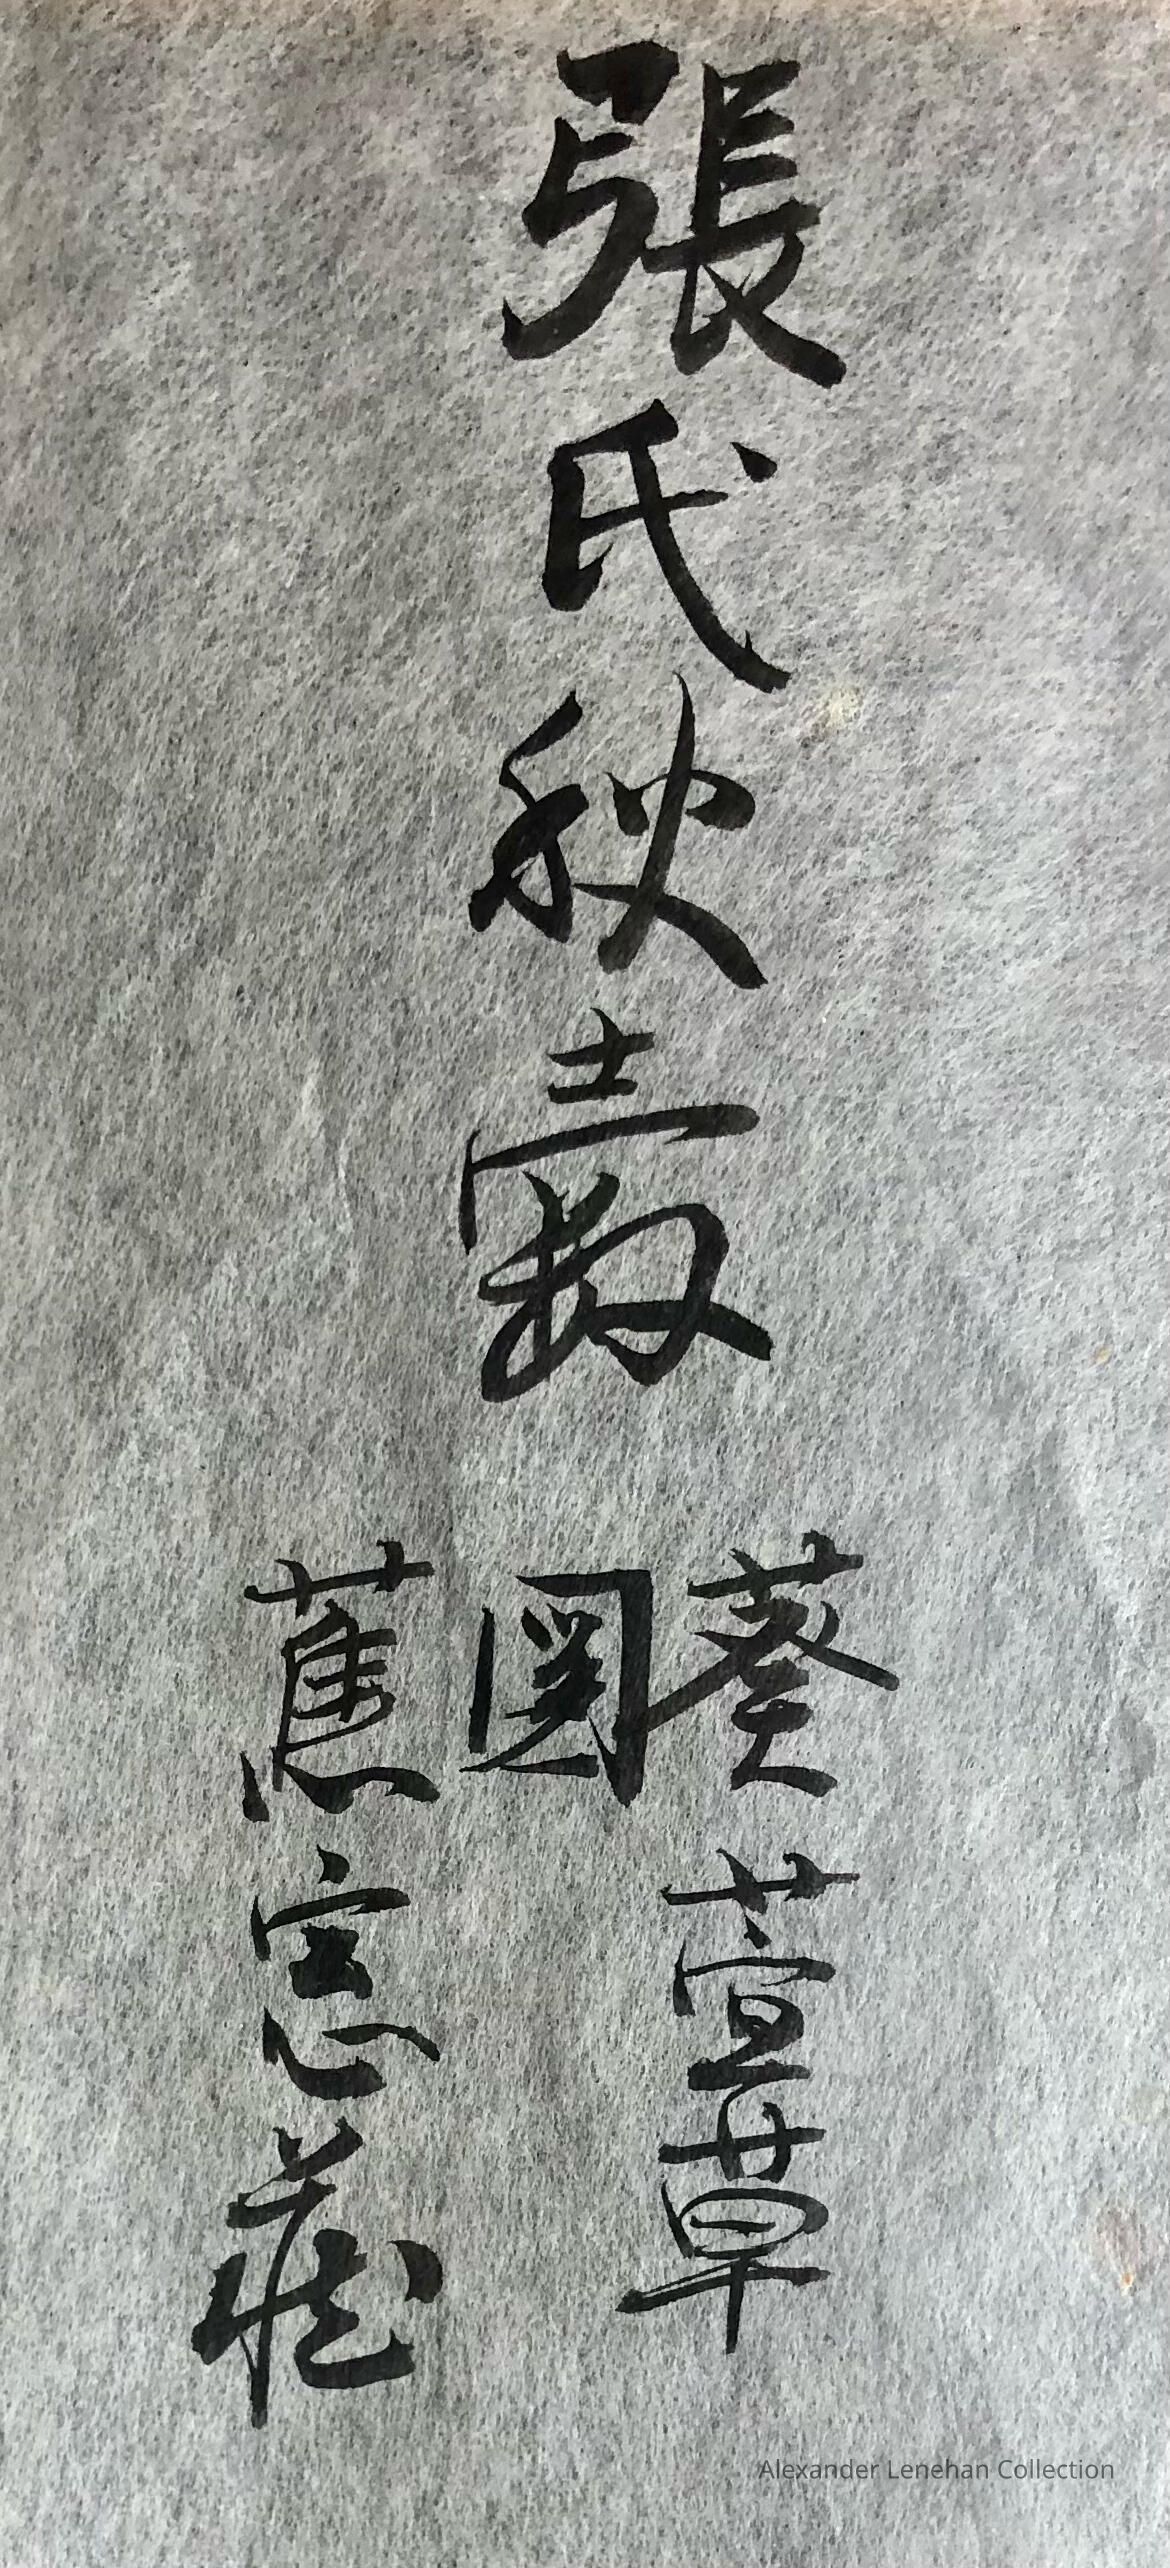 張氏秋穀
葵萱草
圖
蕉窓蔵
Alexander Lenehan Collection